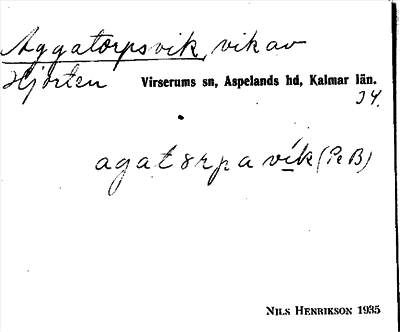 Aggatorpsvik, vik av
Hjorten Virserums sn, Aspelands hd, Kalmar län.
34.
agatorpa vík (PeB)
NILS HENRIKSON 1935